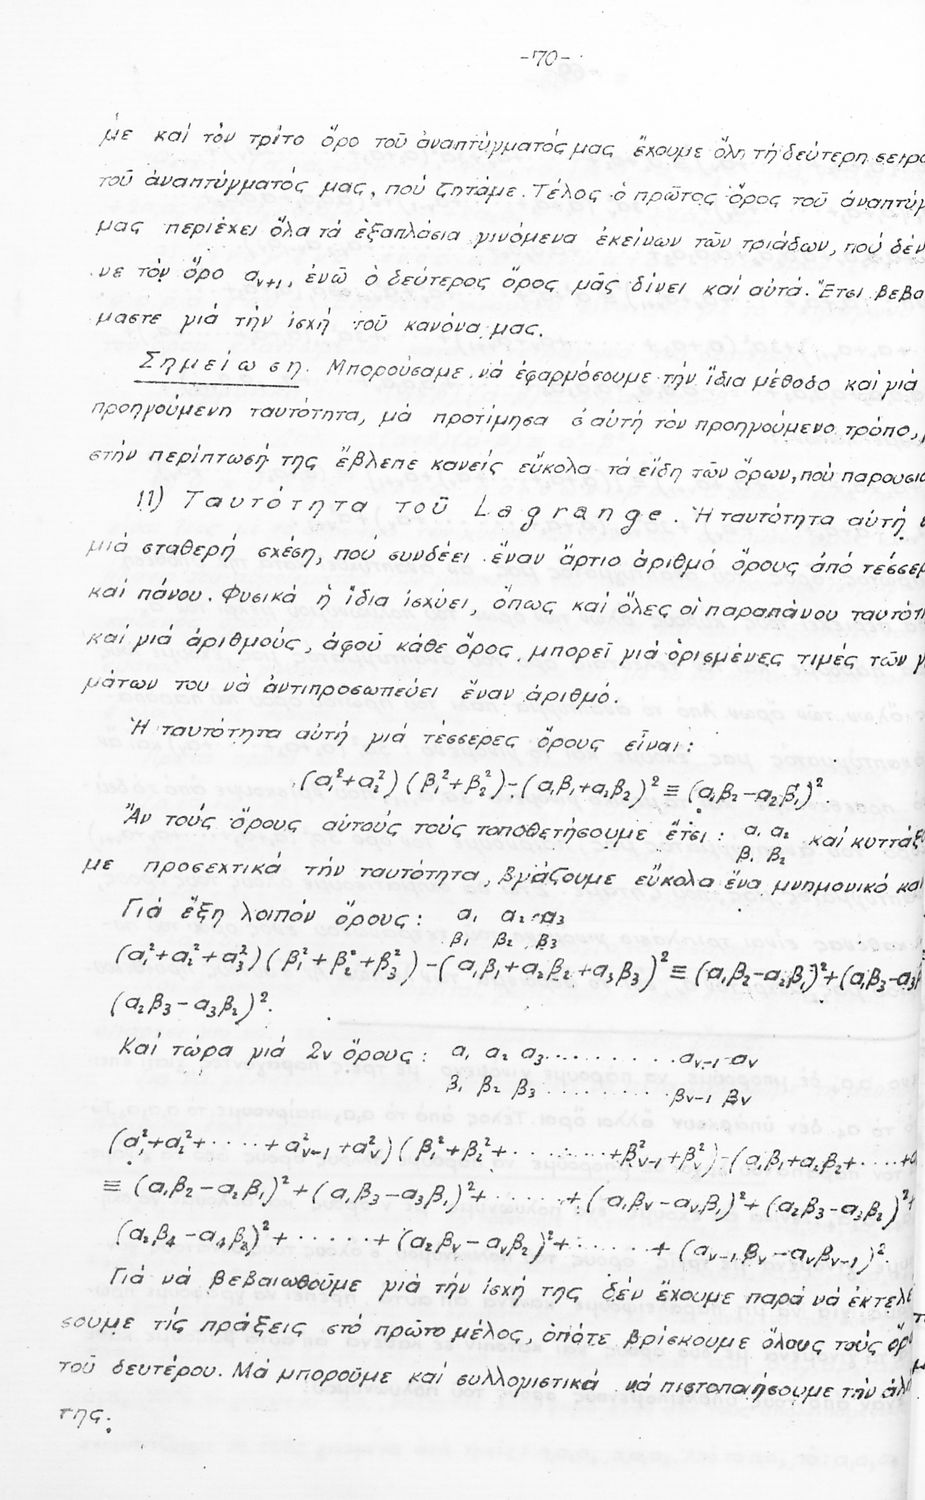 -70-
με καί τόν τρίτο ὅρο τοῦ ἀναπτύγματός μας ἔχουμε ὅλη τή δεύτερη σειρά
τοῦ ἀναπτύγματός μας, πού ζητάμε. Τέλος ὁ πρῶτος ὅρος τοῦ ἀναπτύγ
μας περιέχει ὅλα τά ἑξαπλάσια γινόμενα ἐκείνων τῶν τριάδων, πού δέν
νε τόν ὅρο αν+1, ἐνῶ ὁ δεύτερος ὅρος μᾶς δίνει καί αὐτά. Ἔτσι βεβα
μαστε γιά τήν ἰσχή τοῦ κανόνα μας.
Σημείωση. Μπορούσαμε νά ἐφαρμόσουμε τήν ἴδια μέθοδο καί γιά
προηγούμενη ταυτότητα, μά προτίμησα σ αὐτή τόν προηγούμενο τρόπο,
στήν περίπτωσή της ἔβλεπε κανείς εὔκολα τά εἴδη τῶν ὅρων, πού παρουσι
11) Ταυτότητα τοῦ Lagrange. Ἡ ταυτότητα αὐτή
μιά σταθερή σχέση, πού συνδέει ἕναν ἄρτιο ἀριθμό ὅρους ἀπό τέσσερ
καί πάνου. Φυσικά ἡ ἴδια ἰσχύει, ὅπως καί ὅλες οἱ παραπάνου ταυτότη
καί γιά ἀριθμούς, ἀφοῦ κάθε ὅρος μπορεῖ γιά ὁρισμένες τιμές τῶν γ
μάτων του νά ἀντιπροσωπεύει ἕναν ἀριθμό.
Ἡ ταυτότητα αὐτή γιά τέσσερες ὅρους εἶναι:
(α₁²+α₂²)(β₁²+β₂²)-(α₁β₁+α₂β₂)²≡(α₁β₂-α₂β₁)².
Ἄν τούς ὅρους αὐτούς τούς τοποθετήσουμε ἔτσι: α₁ α₂ καί κυττάξ
β₁ β₂
με προσεχτικά τήν ταυτότητα, βγάζουμε εὔκολα ἕνα μνημονικό κα
Γιά ἕξη λοιπόν ὅρους: α₁ α₂ α₃
β₁ β₂ β₃
(α₁²+α₂²+α₃²)(β₁²+β₂²+β₃²)-(α₁β₁+α₂β₂+α₃β₃)²≡(α₁β₂-α₂β₁)²+(α₁β₃-α₃β
(α₂β₃-α₃β₂)².
Καί τώρα γιά 2ν ὅρους: α₁ α₂ α₃..........αν-1 αν
β₁ β₂ β₃..........βν-1 βν
(α₁²+α₂²+....+α²ν-1+α²ν)(β₁²+β₂²+........+β²ν-1+β²ν)-(α₁β₁+α₂β₂+....+α
≡(α₁β₂-α₂β₁)²+(α₁β₃-α₃β₁)²+......+(α₁βν-ανβ₁)²+(α₂β₃-α₃β₂)²+
(α₂β₄-α₄β₂)²+......+(α₂βν-ανβ₂)²+......+(αν-1βν-ανβν-1)².
Γιά νά βεβαιωθοῦμε γιά τήν ἰσχή της δέν ἔχουμε παρά νά ἐκτελέ
σουμε τίς πράξεις στό πρῶτο μέλος, ὁπότε βρίσκουμε ὅλους τούς ὅρ
τοῦ δευτέρου. Μά μποροῦμε καί συλλογιστικά νά πιστοποιήσουμε τήν ἀλ
της.